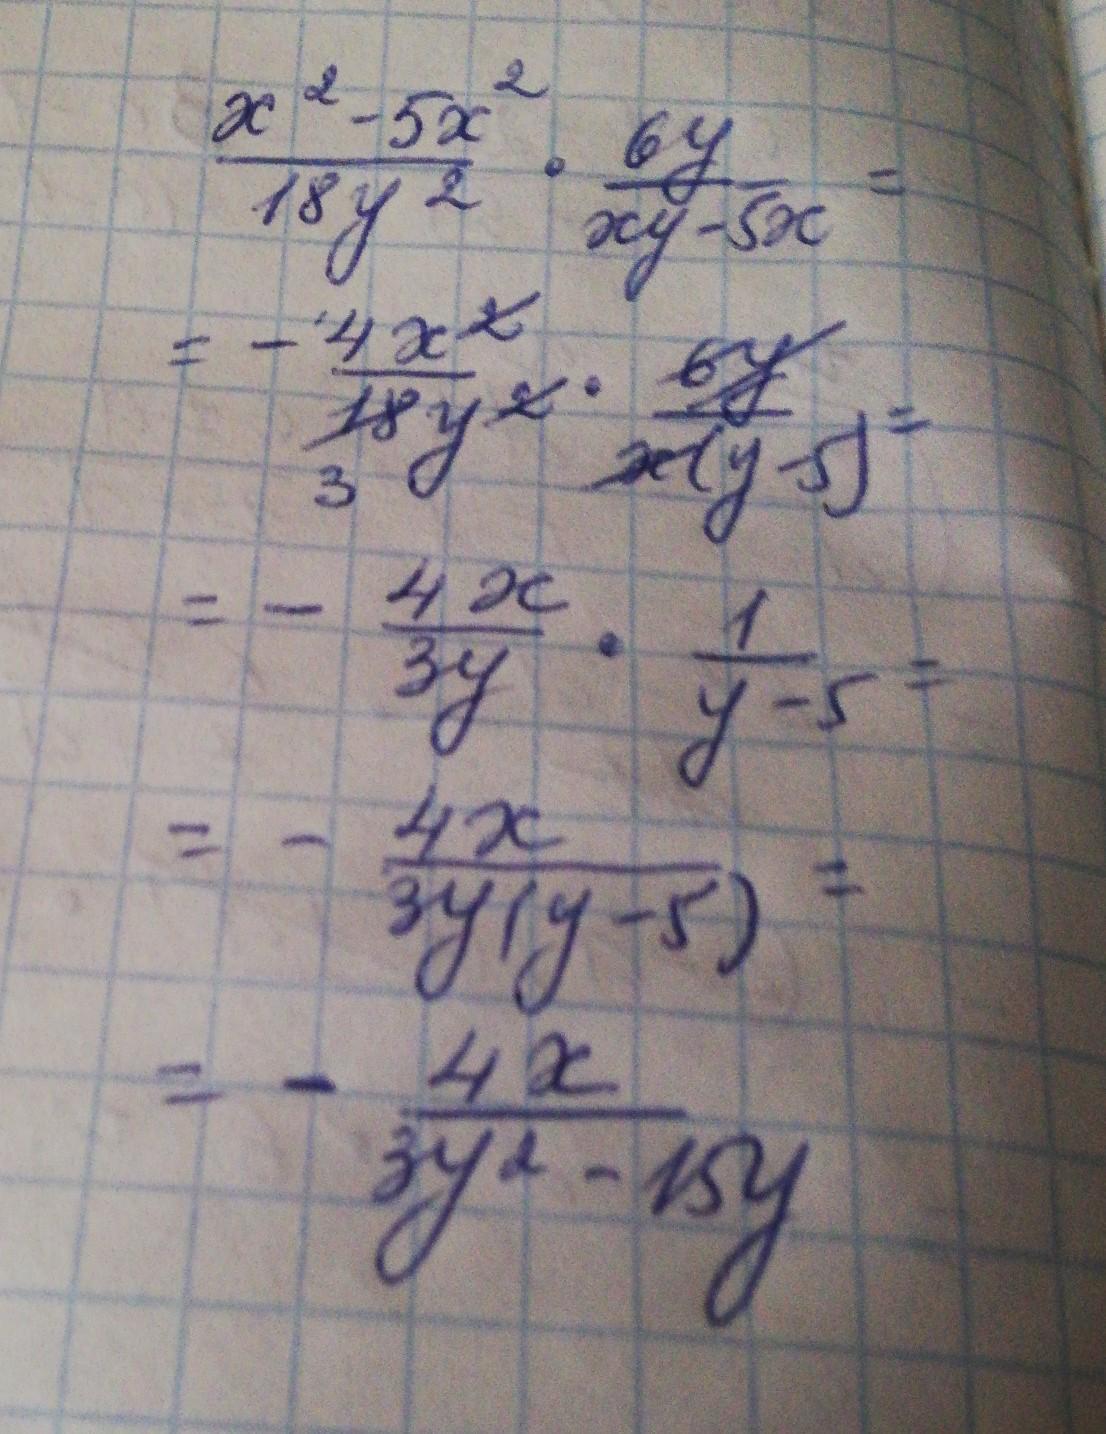 x² - 5x² / 18y² · 6y / xy - 5x =
= - 4x² / 18y² 3 · 6y / x(y - 5) =
= - 4x / 3y · 1 / y - 5 =
= - 4x / 3y(y - 5) =
= - 4x / 3y² - 15y